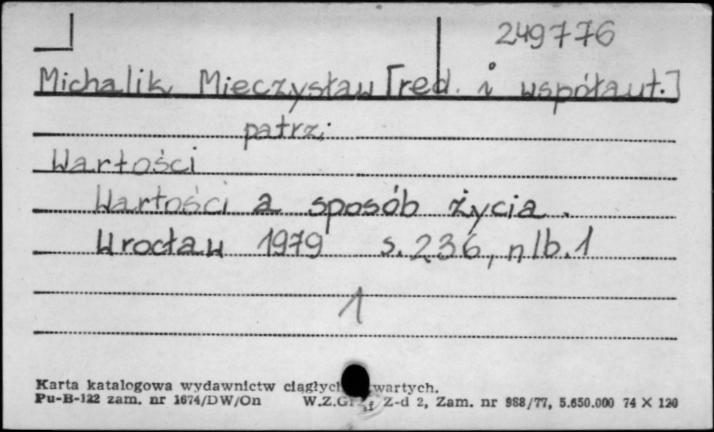 249776
Michalik Mieczysław [red. i współaut.]
patrz:
Wartości
Wartości a sposób życia.
Wrocław 1979 s. 236, nlb. 1
1
Karta katalogowa wydawnictw ciągłych
Pu-B-122 zam. nr 1674/DW/On W.Z.Graf Z-d 2, Zam. nr 988/77, 5.650.000 74 × 120